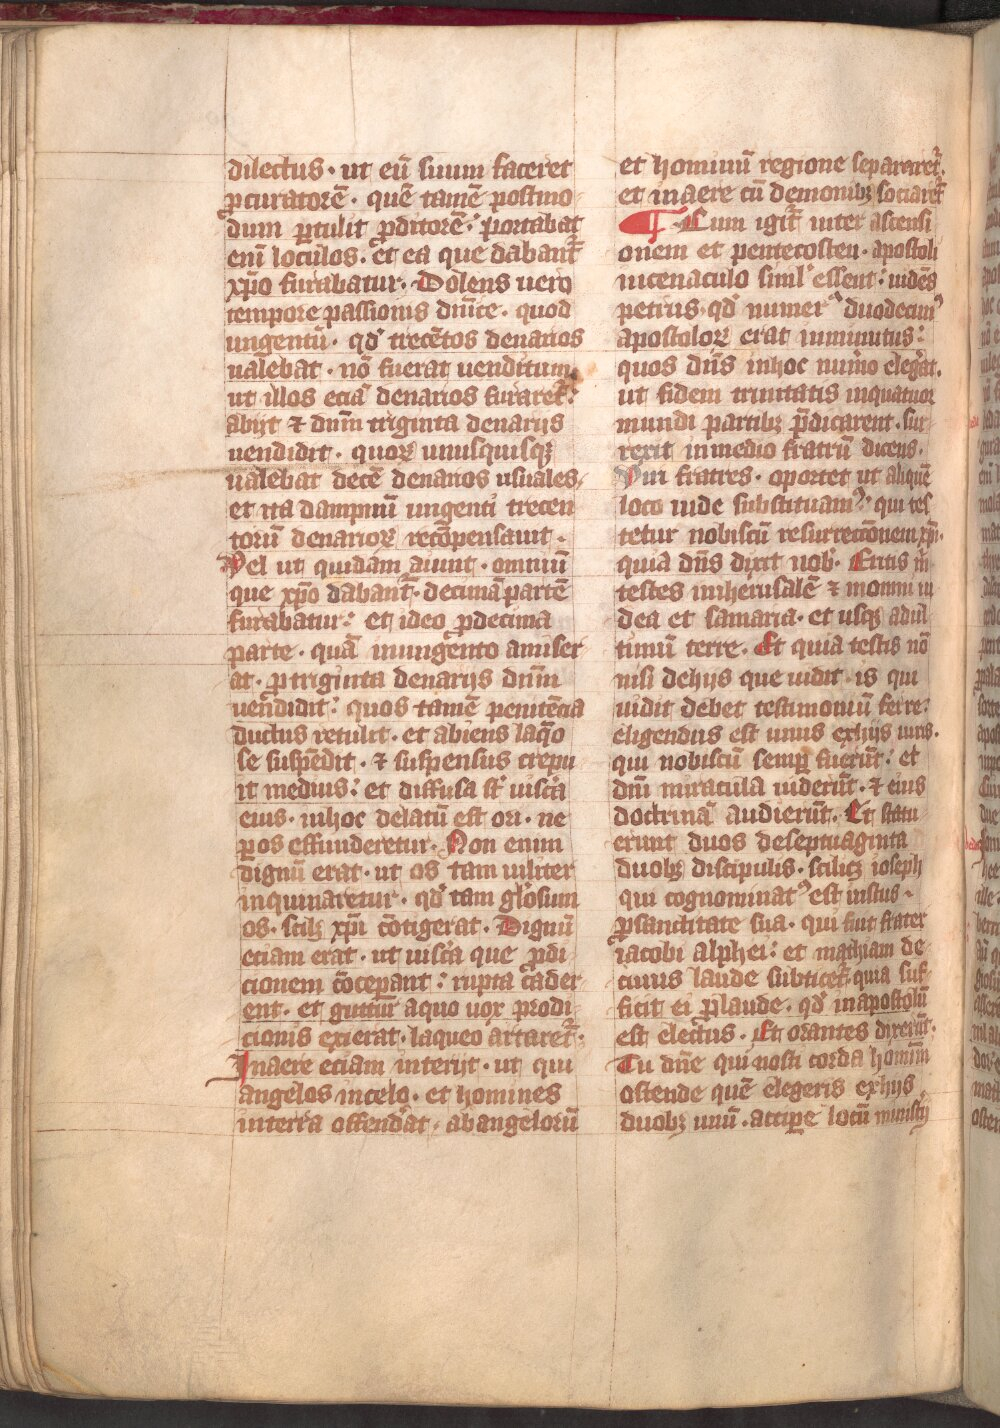 dilectus · ut eū suum faceret
ꝓcuratorē · quē tamē postmo
dum ꝑtulit ꝓditorē · portabat
enī loculos · et ea que dabant᷑
xp̄o furabatur · Dolens uero
tempore passionis dn̄ice · quod
ungentū · qd᷑ trecētos denarios
ualebat · nō fuerat uenditum
ut illos eciā denarios furaret᷑ ·
abijt ⁊ dn̄m triginta denarijs
uendidit · quoꝝ unusquisqꝫ
ualebat decē denarios usuales ·
et ita dampnū ungenti trecen
torū denarioꝝ recōpensauit ·
Vel ut quidam aiunt · omniū
que xp̄o dabant᷑ · decimā partē
furabatur : et ideo ꝓdecima
parte · quā inungento amiser
at · ꝓtriginta denarijs dn̄m
uendidit : quos tamē penitēcia
ductus retulit · et abiens laqͦ̄
se suspēdit · ⁊ suspensus crepu
it medius : et diffusa st᷑ uiscͣa
eius · inhoc delatū est ori · ne
ꝑ os effunderetur · Non enim
dignū erat · ut os tam uiliter
inquinaretur · qd᷑ tam gl̓osum
os · scilꝫ xp̄i cōtigerat · Dignū
eciam erat · ut uiscͣa que ꝓdi
cionem cōceperant : rupta cader
ent · et guttur̄ aquo uox prodi
cionis exierat · laqueo artaret᷑ ·
Inaere eciam interijt · ut qui
angelos incelo · et homines
interra offendͣat · abangelorū
et hominū regione separaret᷑ ·
et inaere cū demonibꝫ sociaret᷑
¶ Cum igit᷑ inter ascensi
onem et pentecosten · apostoli
incenaculo siml̓ essent : uidēs
petrus · qd᷑ numerꝰ duodecimꝰ
apostoloꝝ erat inminutus :
quos dn̄s inhoc num̓o eleg̓at ·
ut fidem trinitatis inquatuor
mundi partibꝫ p̄dicarent · sur
rexit inmedio fratrū dicens ·
Viri fratres · oportet ut aliquē
loco iude substituamꝰ · qui tes
tetur nobiscū resurrectōnem xp̄i ·
quia dn̄s dixit nob̓ · Eritis m̄
testes iniherusalē ⁊ inomni iu
dea et samaria · et usqꝫ adul
timū terre · Et quia testis nō
nisi dehijs que uidit · is qui
uidit debet testimoniū ferre :
eligendus est unus exhijs uiris ·
qui nobiscū semꝑ fuerūt : et
dn̄i miracula uiderūt · ⁊ eius
doctrinā audierūt · Et statu
erunt duos deseptuaginta
duobꝫ discipulis · scilicꝫ ioseph
qui cognominatꝰ est iustus ·
ꝓsanctitate sua · qui fuit frater
iacobi alphei : et mathiam de
cuius laude subticet᷑ quia suf
ficit ei ꝓlaude · qd᷑ inapostolū
est electus · Et orantes dixerūt ·
Tu dn̄e qui nosti corda hominū
ostende quē elegeris exhijs
duobꝫ unū · accipe locū ministͥij